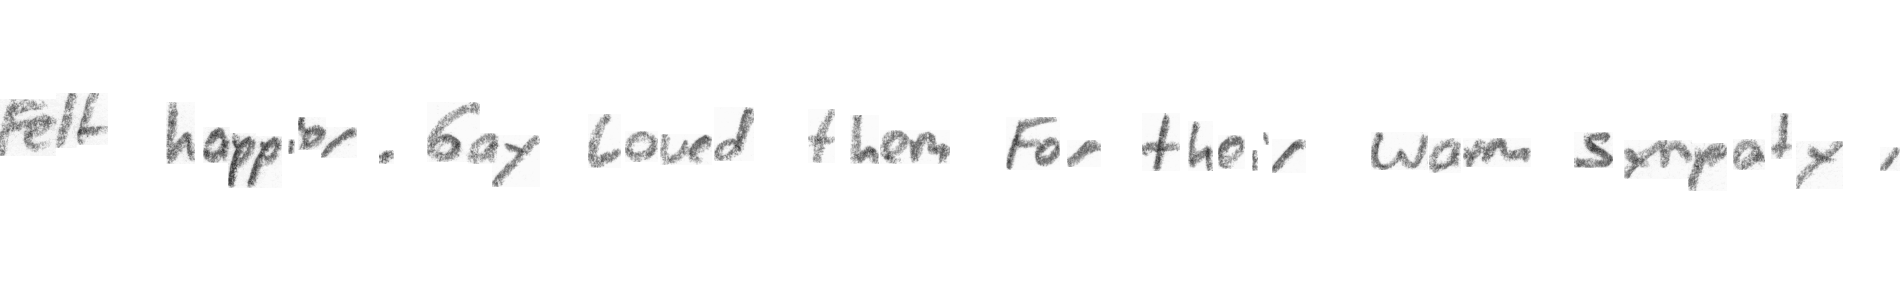 Felt happier. Gay Loved them For their warm sympaty,